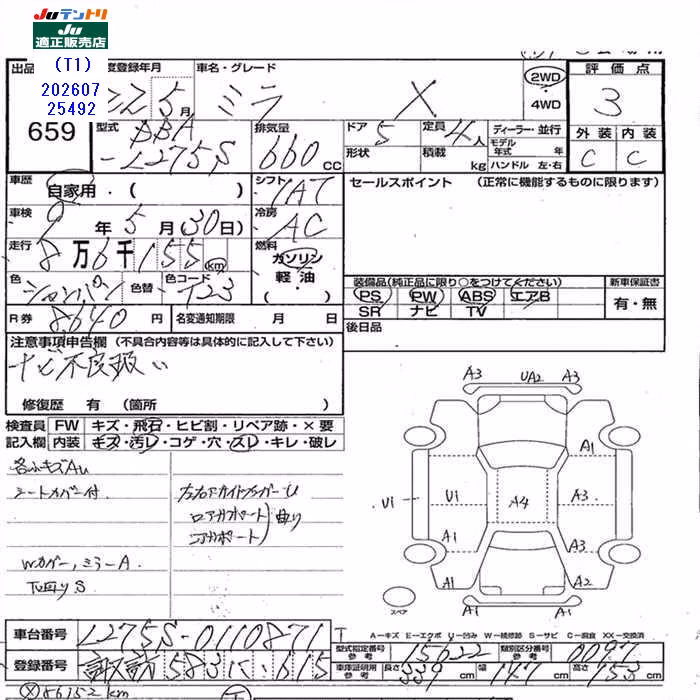 JUテントリ
JU
適正販売店
(T1)
202607
25492
出品
659
初度登録年月
22年5月
車名・グレード
ミラ X
2WD
4WD
評価点
3
外装 内装
C C
型式
DBA
-L275S
排気量
660 CC
ドア 5
形状
定員 4人
積載 kg
ディーラー・並行
モデル年式 年
ハンドル 左・右
車歴
自家用・( )
シフト
IAT
セールスポイント (正常に機能するものに限ります)
車検
9年5月(30日)
冷房
AC
走行
8万6千155km
燃料
ガソリン
軽油
・( )
色
シャンパン
色替
色コード
T23
装備品(純正品に限り○をつけてください)
新車保証書
PS PW ABS エアB
SR ナビ TV
有・無
R券
8640円
名変通知期限 月 日
後日品
注意事項申告欄 (不具合内容等は具体的に記入して下さい)
ナビ不良扱い
修復歴 有 (箇所 )
検査員 FW キズ・飛石・ヒビ割・リペア跡・×要
記入欄 内装 キズ・汚レ・コゲ・穴・スレ・キレ・破レ
各部キズAU
シートカバー付
Wカバー、ミラーA
TV回りS
左右サイドメンバーU
ロアサポート
コアサポート
曲り
A3 UA2 A3
A1
U1 U1 A4 A3
A1 A3
A1 A2
A1 A1
スペア
車台番号
L275S-0110871
A-キズ E-エクボ U-凹み W-補修跡 S-サビ C-腐食 XX-交換済
型式指定番号 参考
15022
類別区分番号 参考
0097
登録番号
諏訪583に・615
車庫証明用 参考
長さ 339cm 幅 147cm 高さ 153cm
86152km